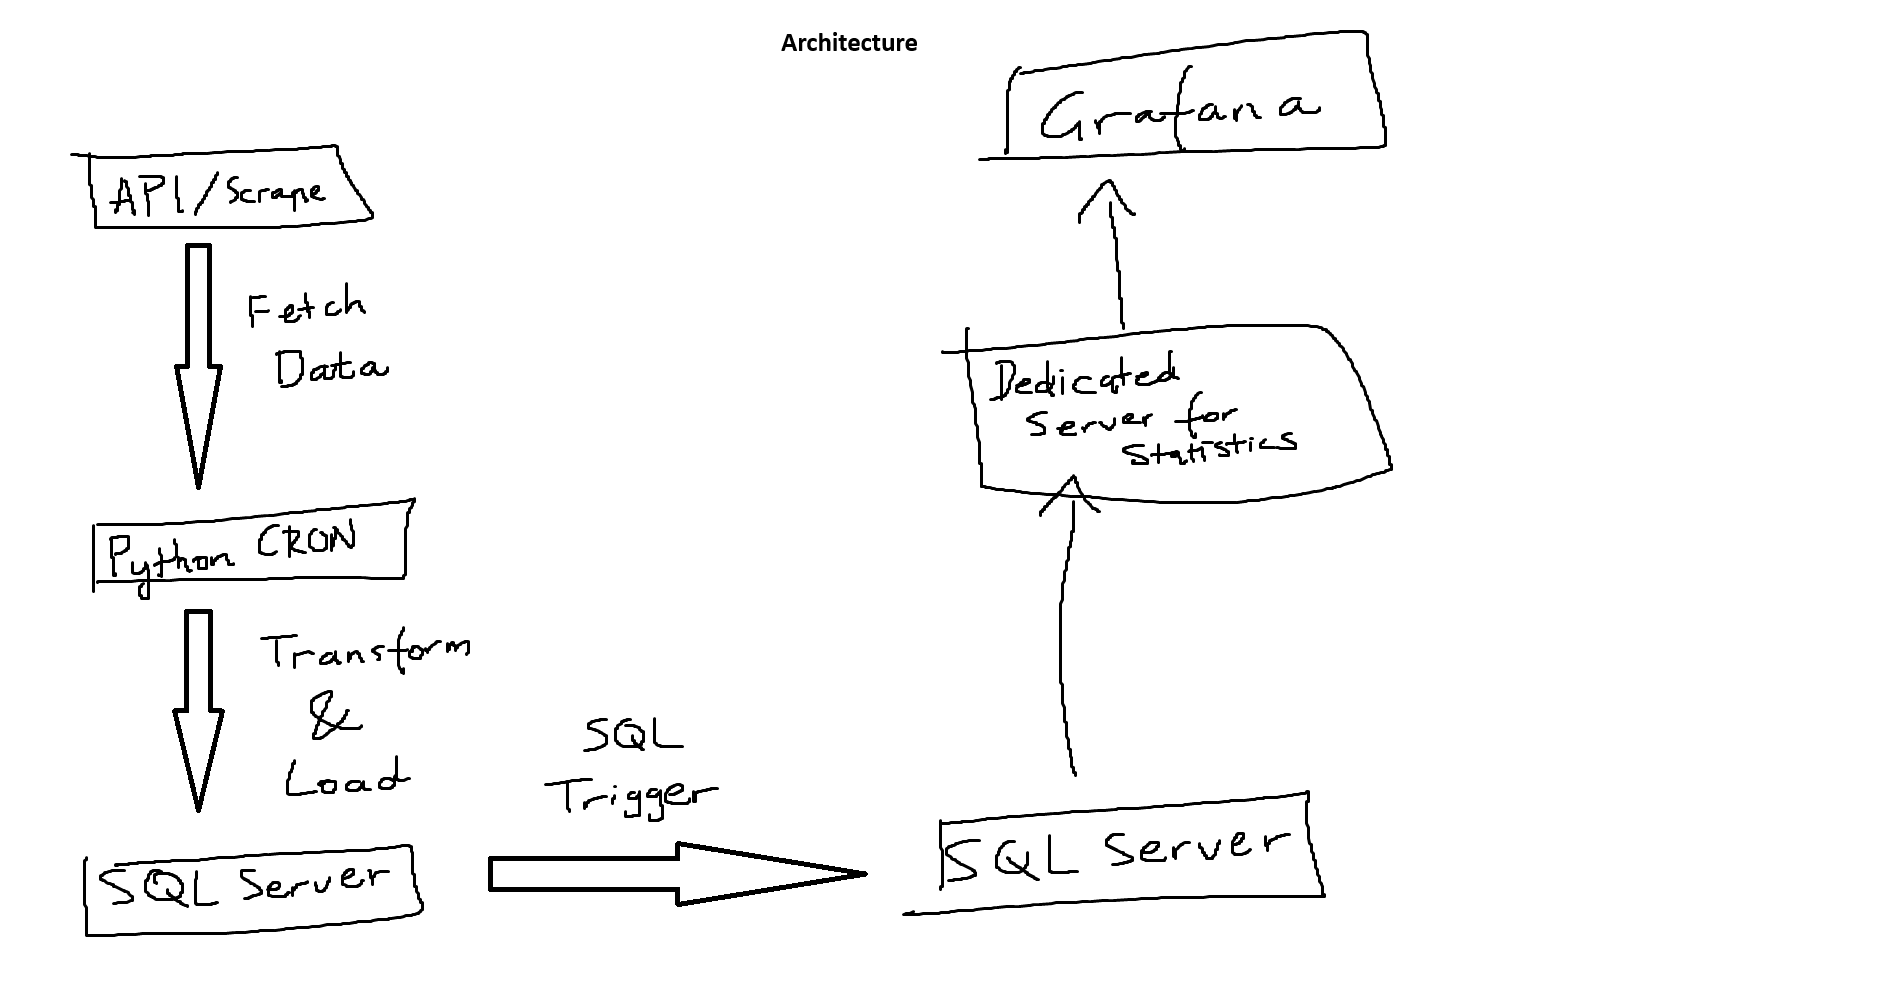 Architecture
API/Scrape
Fetch
Data
Python CRON
Transform
&
Load
SQL Server
SQL
Trigger
SQL Server
Dedicated
Server for
Statistics
Grafana